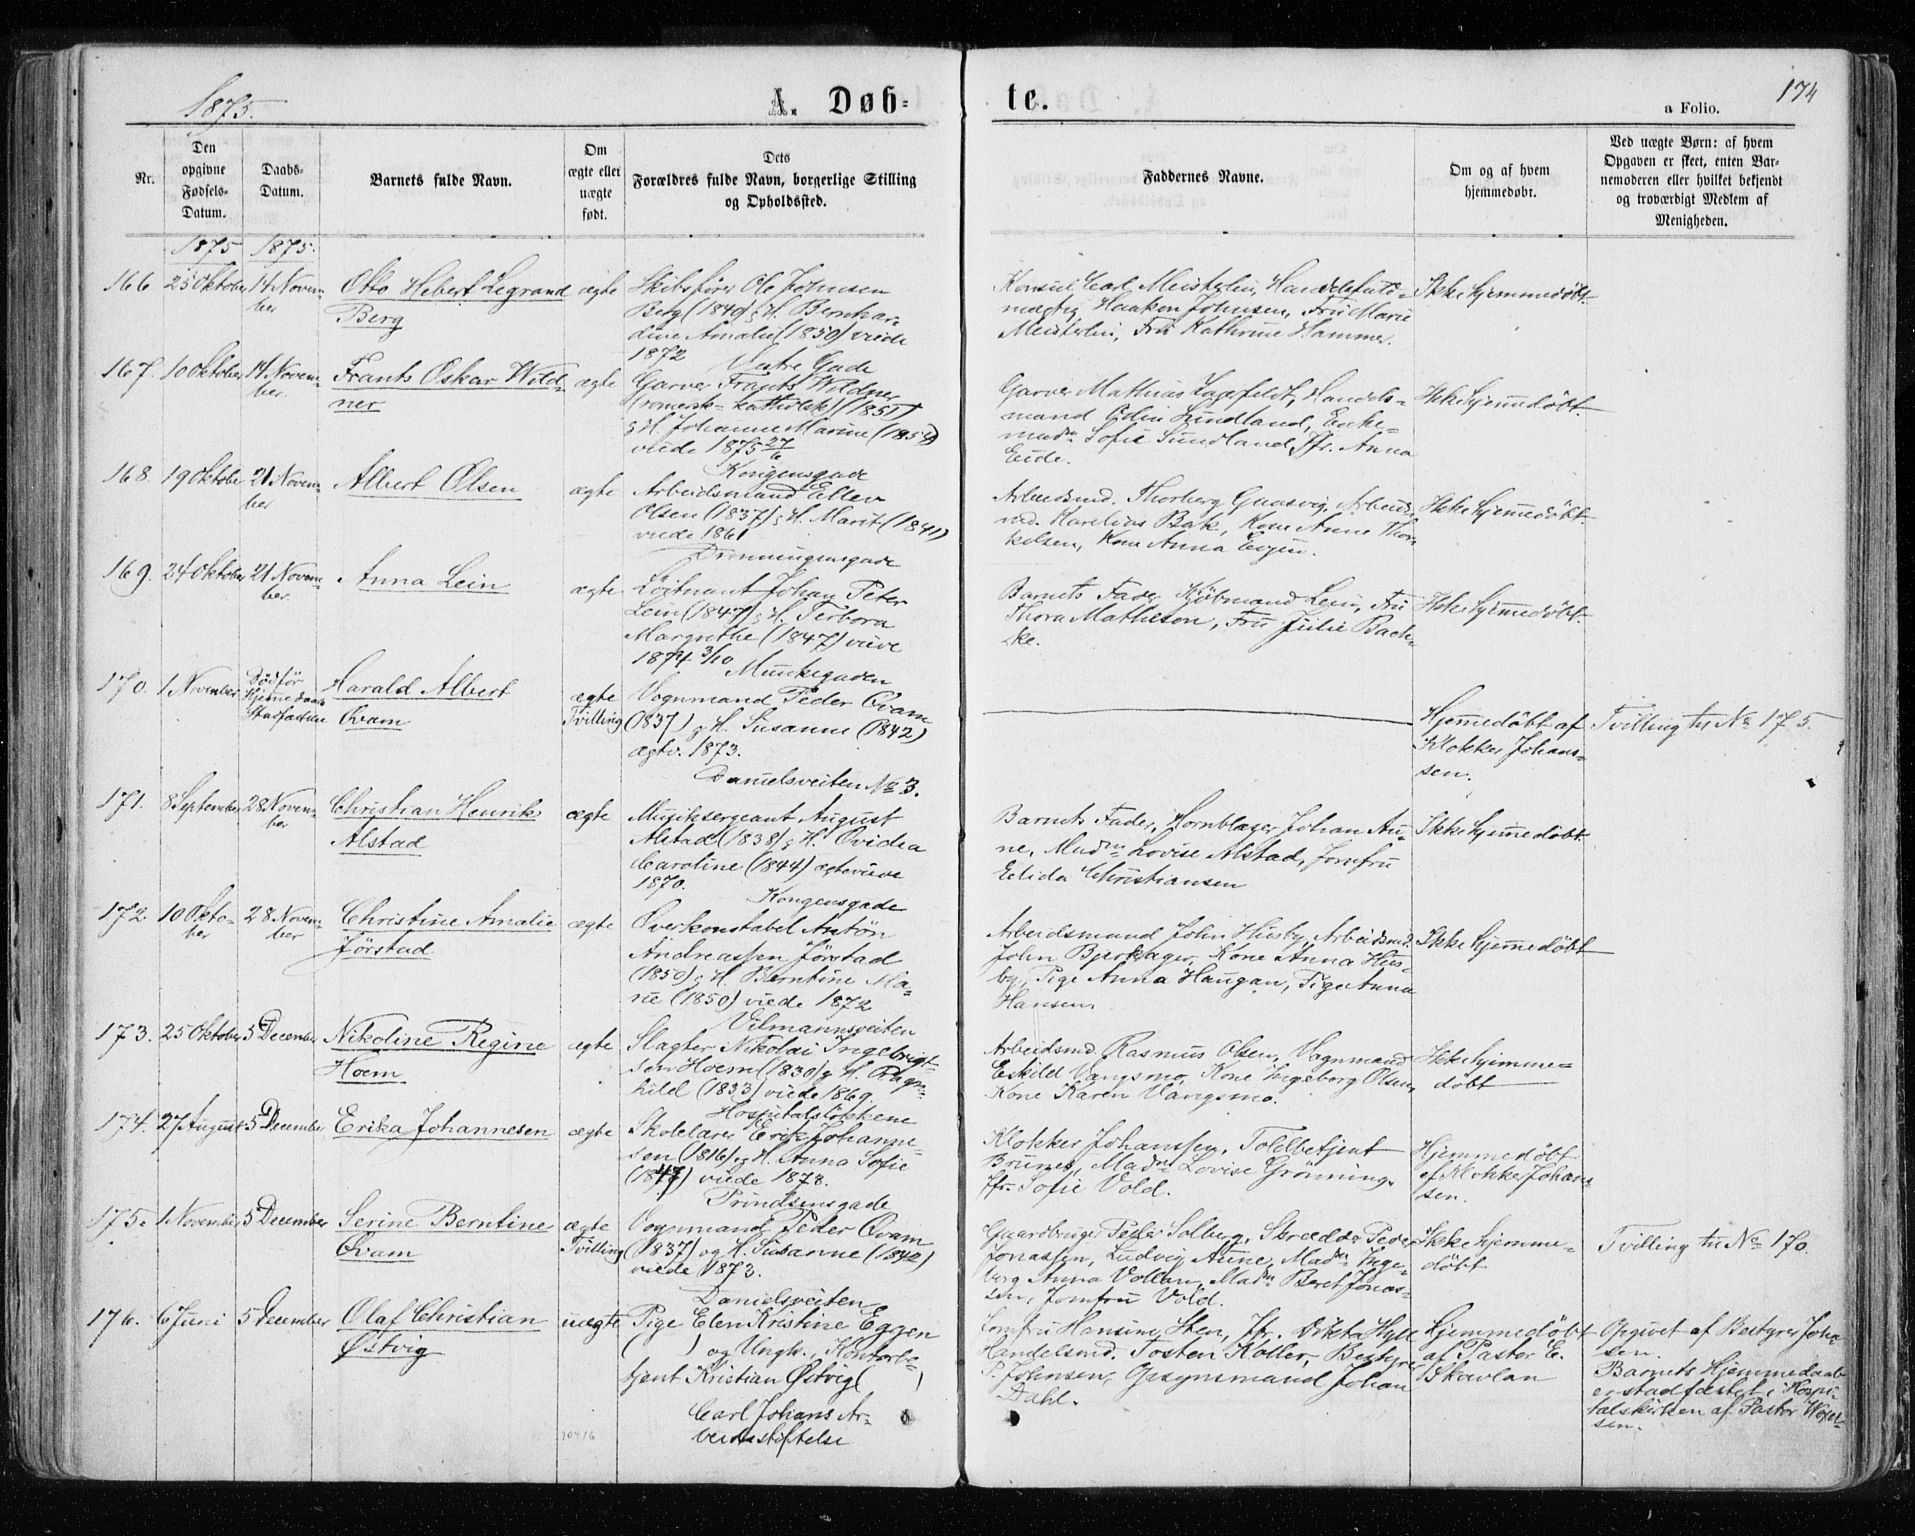 1875.
A. Døb-
te.
174
a Folio.
Nr.
Den
opgivne
Fødsels-
Datum.
Daabs-
Datum.
Barnets fulde Navn.
Om
ægte eller
uægte
født.
Dets
Forældres fulde Navn, borgerlige Stilling
og Opholdssted.
Faddernes Navne.
Om og af hvem
hjemmedøbt.
Ved uægte Børn: af hvem
Opgaven er skeet, enten Bar-
nemoderen eller hvilket bekjendt
og troværdigt Medlem af
Menigheden.
1875 1875.
166 25 Oktober 14 Novem-
ber
Otto Hebert Legrand
Berg
ægte
Skibsfører Ole Johnsen
Berg (1840) & H. Bernhar-
dine Amalie (1850) viede
1872
Konsul Carl Meisterlin, Handelsfuld-
mægtig Haakon Johnsen, Fru Marie
Meisterlin, Fru Kathrine Hammer.
Ikke hjemmedøbt.
167. 10 Oktober 14 Novem-
ber.
Frants Oskar Wild-
ner
ægte
Gade
Garver Frants Wildner
(romersk-katholsk) (1851)
& H. Johanne Marine (1854)
viede 1875 27/6
Garver Mathias Lagerfeldt, Handels-
mand Odin Sundland, Enke-
madm Sofie Sundland, Jfr. Anna
Eide.
Ikke hjemmedøbt.
168. 19 Oktober 21 Novem-
ber
Albert Olsen
ægte
Kongensgade
Arbeidsmand Ellev
Olsen (1837) & H. Marit (1841)
viede 1861
Arbeidsmd. Thorberg Gaasvig, Arbeids-
md. Karelius Bak, Kone Anne Thor-
kelsen, Kone Anna Evjen.
Ikke hjemmedøbt.
169. 24 Oktober 21 Novem-
ber.
Anna Lein
ægte
Dronningensgade
Løitnant Johan Peter
Lein (1847) & H. Terbora
Margrethe (1847) viede
1874 3/10
Barnets Fader, Kjøbmand Lein, Fru
Thora Matheson, Fru Julie Bach-
ke.
Ikke hjemmedøbt.
170. 1 November
Død før
Hjemmedaab
Stadfæstelse
Harald Albert
Qvam
ægte
Tvilling
Munkegaden
Vognmand Peder Qvam
(1837) & H. Susanne (1842)
ægtv. 1873.
Hjemmedøbt af
Klokker Johans-
sen.
Tvilling til No 175.
171. 8 September 28 Novem-
ber
Christian Henrik
Alstad
ægte
Danielsveiten No 3.
Musiksergeant August
Alstad (1838) & H. Ovidia
Caroline (1844) ægteviede
1870.
Barnets Fader, Hornblæser Johan Au-
ne, Madm Lovise Alstad, Jomfru
Elida Christiansen
Ikke hjemmedøbt.
172. 10 Okto-
ber
28 Novem-
ber
Christine Amalie
Jørstad
ægte
Kongensgade
Overkonstabel Anton
Andreassen Jørstad
(1850) & H. Berntine Ma-
rie (1850) viede 1872
Arbeidsmand John Husby, Arbeidsmd.
John Bjerkager, Kone Anna Hus-
by, Pige Anna Haugan, Pige Anna
Hansen.
Ikke hjemmedøbt
173. 25 Oktober 5 December
Nikoline Regine
Hoem
ægte
Vilmannsveiten
Slagter Nikolai Ingebrigt-
sen Hoem (1830) & H. Ragn-
hild (1833) viede 1869.
Arbeidsmd. Rasmus Olsen, Vognmand
Eskild Vangsmo, Kone Ingeborg Olsen,
Kone Karen Vangsmo.
Ikke hjemme-
døbt
174. 27 August 5 December
Erika Johannesen
ægte
Hospitalsløkkene
Skolelærer Erik Johanne-
sen (1816) og H. Anna Sofie
(1847) viede 1873.
Klokker Johanssen, Toldbetjent
Brunes, Madm Lovise Grønning,
Jfr. Sofie Vold.
Hjemmedøbt
af Klokker Johans-
sen.
175. 1 November 5 December
Serine Berntine
Qvam
ægte
Tvilling
Prindsensgade
Vognmand Peder Qvam
(1837) og H. Susanne (1842)
viede 1873.
Gaardbruger Peder Solberg, Skrædder Peder
Jonassen, Ludvig Aune, Madm Inge-
borg Anna Vollan, Madm Beret Jonas-
sen, Jomfru Vold.
Ikke hjemme-
døbt
Tvilling til No 170.
176. 6 Juni 5 December
Olaf Christian
Østvig
uægte
Danielsveiten
Pige Elen Kristine Eggen
( ) og Ungk., Kontorbe-
tjent Kristian Østvig ( )
Carl Johans Ar-
beidsstiftelse
Jomfru Hansine Sten, Jfr. Dikta Hyll
Handelsmd. Tosten Koller, Bestyrer
P. Johnsen, Opsynsmand Johan
Dahl.
Hjemmedøbt
af Pastor E.
Skavlan
Opgivet af Bestyrer John-
sen.
Barnets Hjemmedaab
er stadfæstet i Hospi-
talskirken af Pastor
sen.